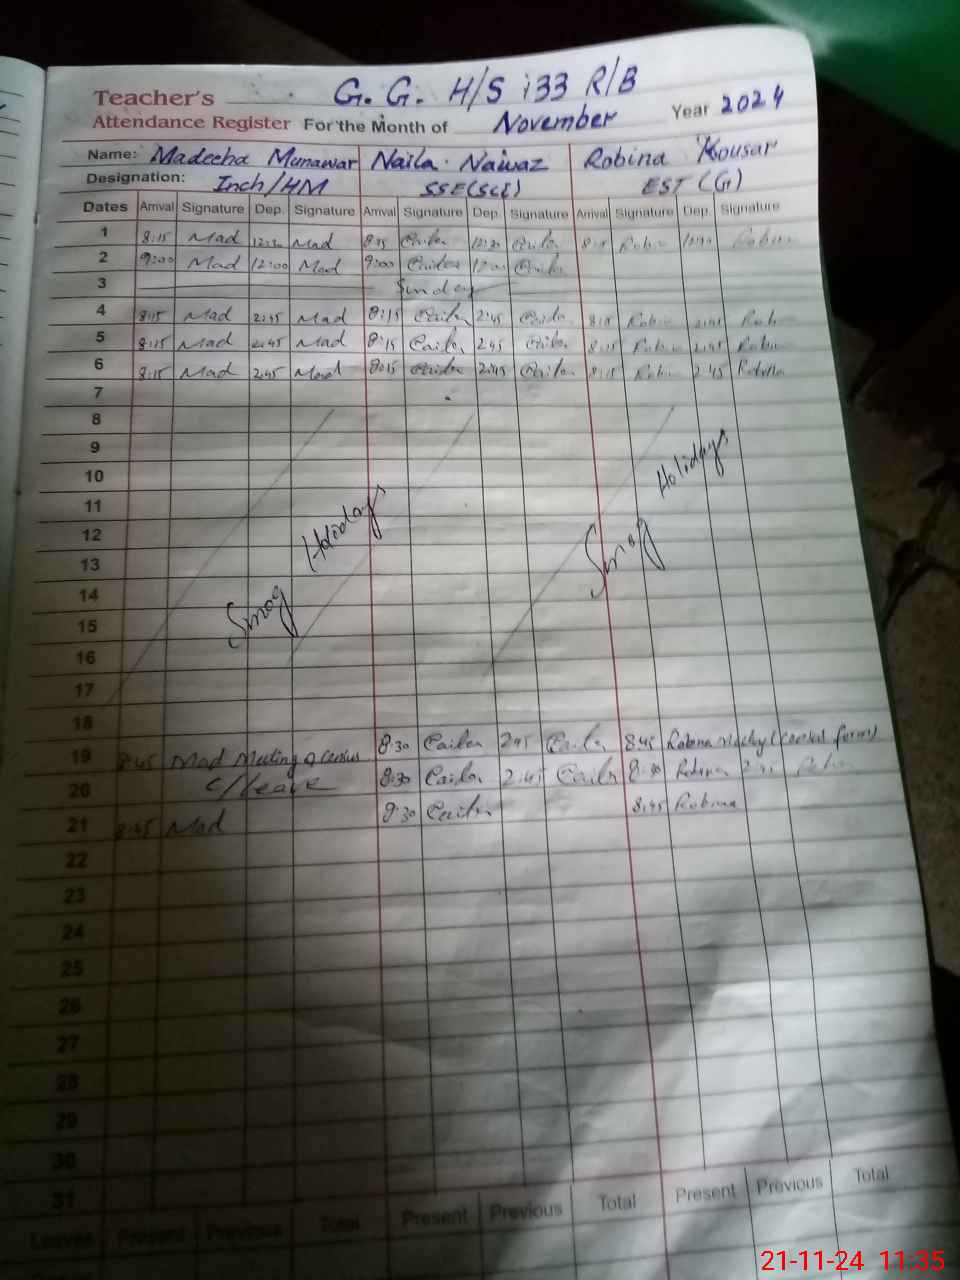 Teacher's G.G. H/S 133 R/B
Attendance Register For the Month of November Year 2024
Name: Madeeha Munawar Naila Nawaz Robina Kousar
Designation: Inch/HM SSE(SCI) EST (G)
Dates Arrival Signature Dep. Signature Arrival Signature Dep. Signature Arrival Signature Dep. Signature
1 8:15 Mad Mad 8:15
2 9:00 Mad 12:00 Mad 9:00
3 Sunday
4 8:15 Mad 2:45 Mad 8:15 2:45 8:15 2:45
5 8:15 Mad 2:45 Mad 8:15 2:45 8:15 2:45
6 8:15 Mad 2:45 Mad 8:15 2:45 8:15 2:45 Robina
7
8
9
10
11
12
13
14
15
16
17
Smog Holiday
Smog Holidays
18
19 8:45 Mad Meeting of Census 8:30 2:45 8:45 Robina
20 C/leave 8:30 2:45 8:30 Robina 2:45
21 8:45 Mad 9:30 8:45 Robina
22
23
24
25
26
27
28
29
30
31
Leaves Present Previous Total Present Previous Total Present Previous Total
21-11-24 11:35